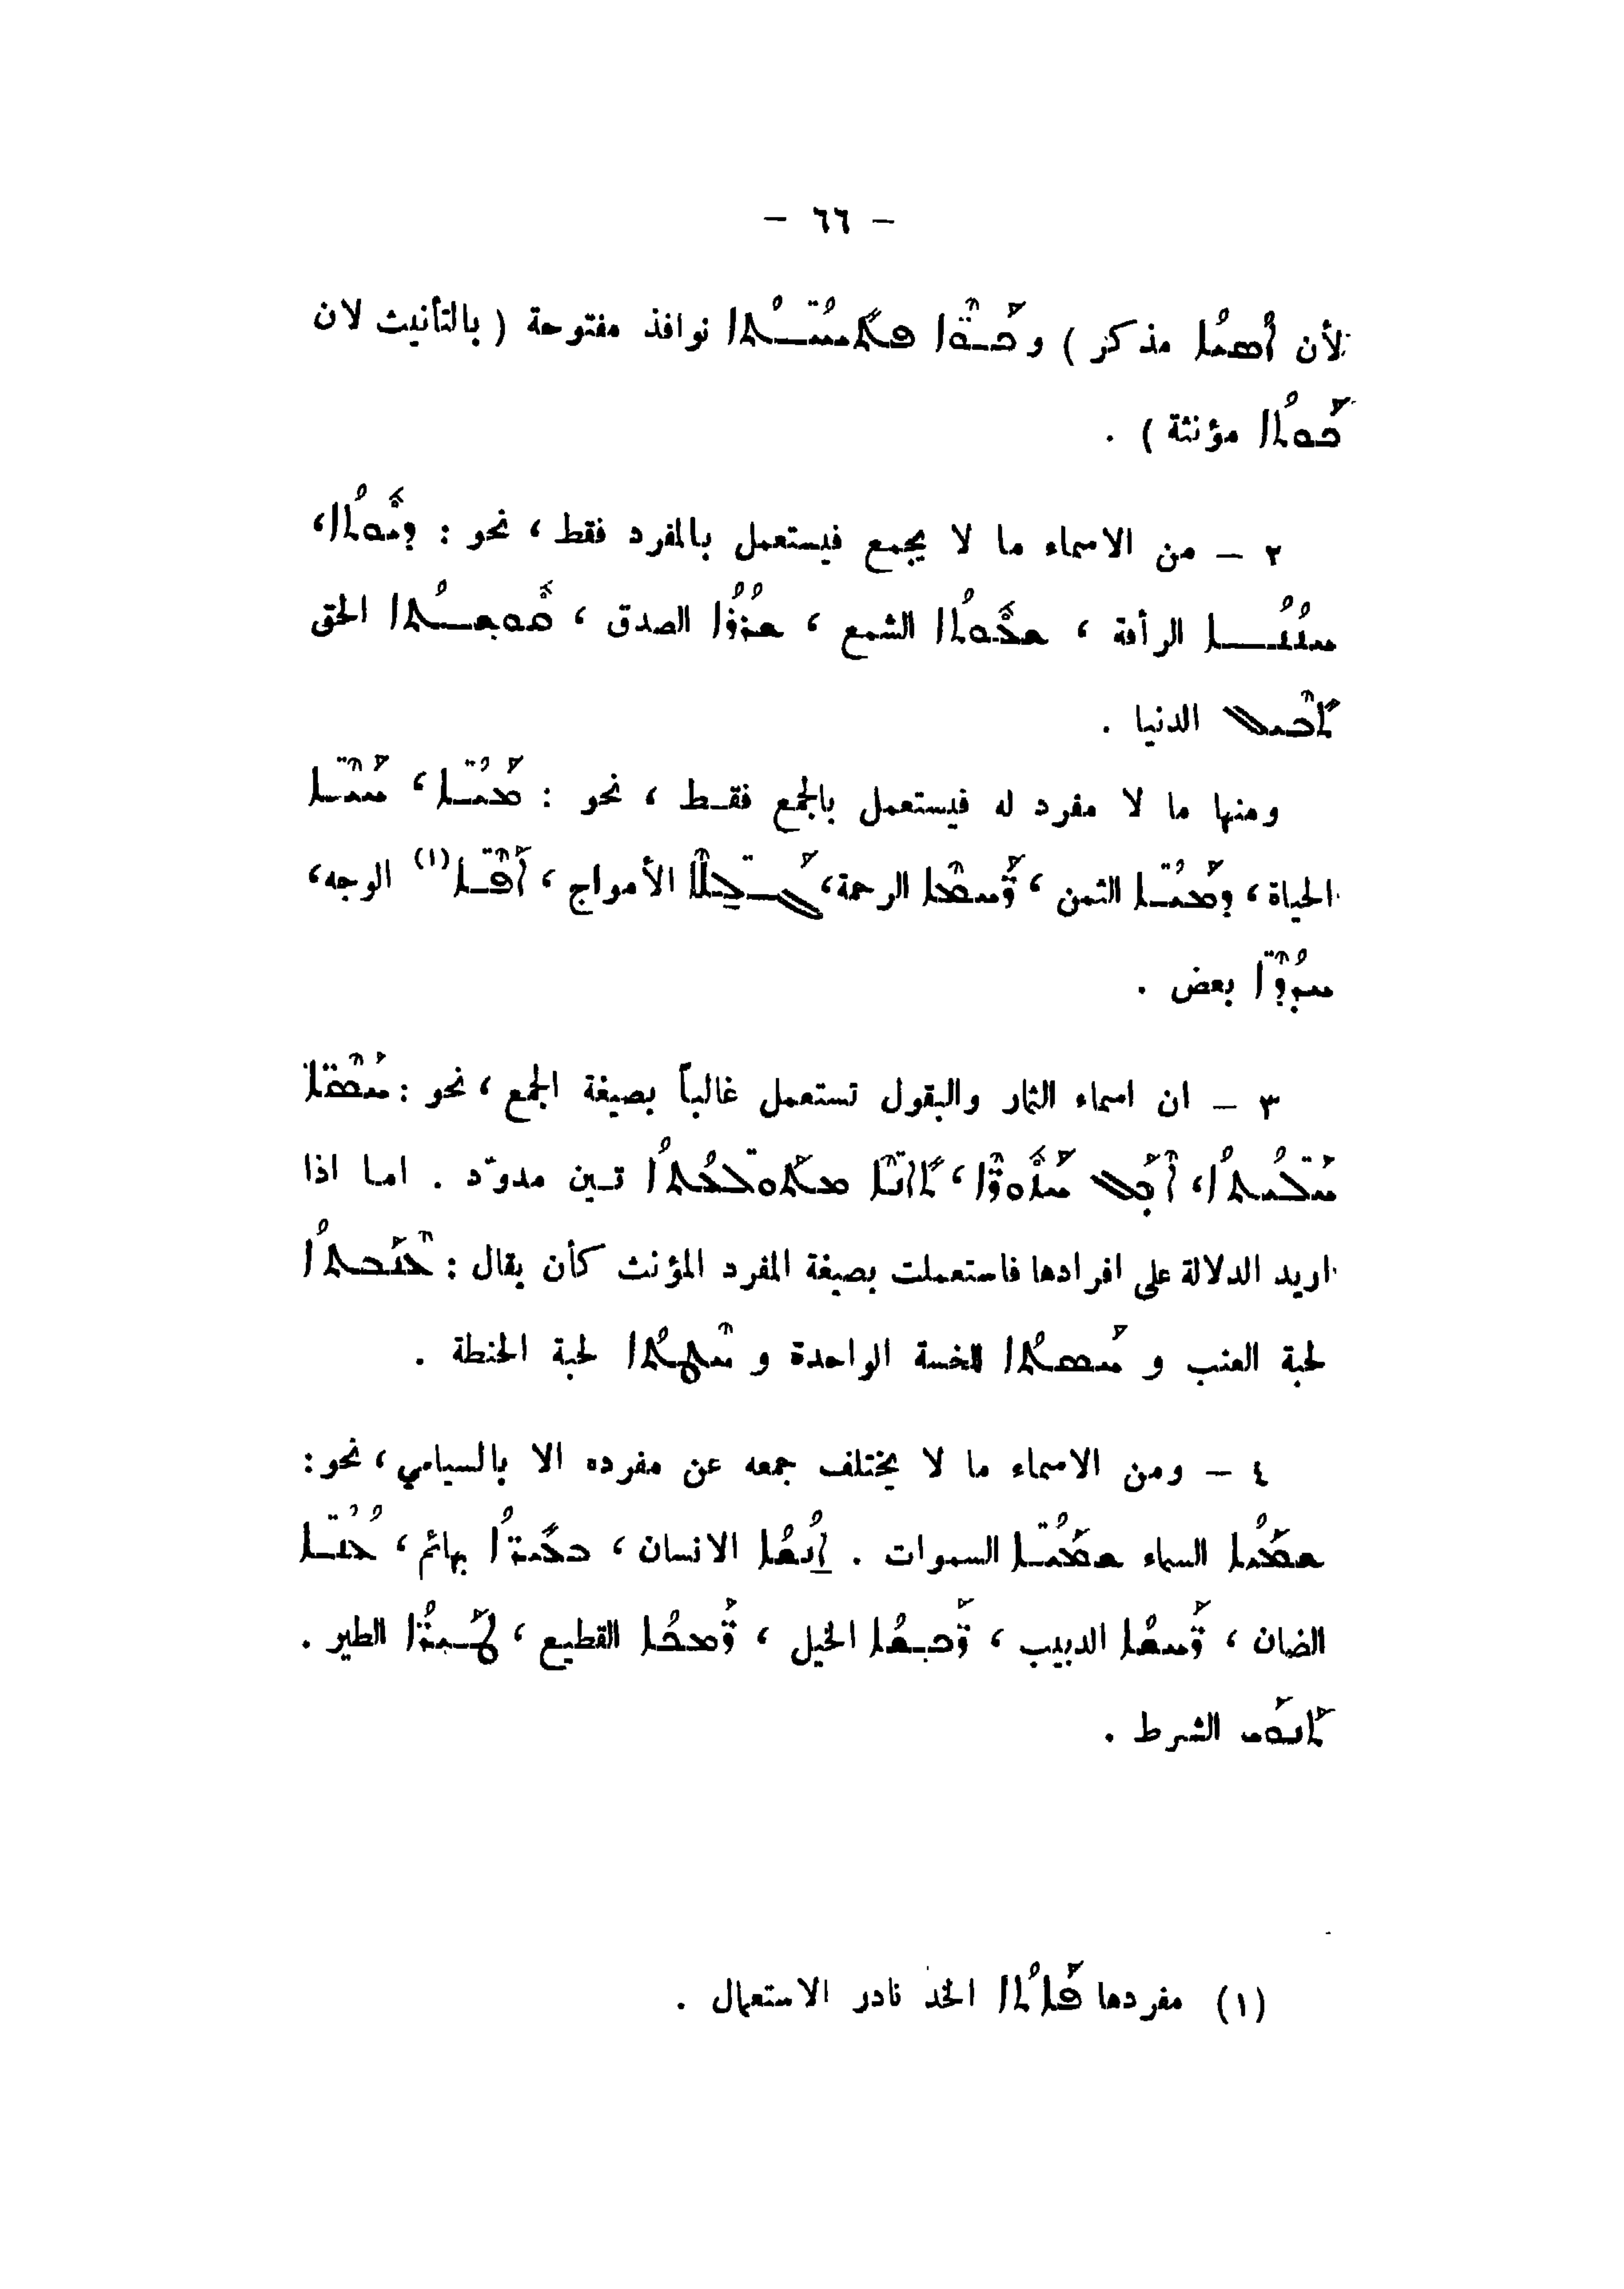 – ٦٦ –
لأن ܐܳܣܝܳܐ مذكر ) و ܟܰܘ̈ܶܐ ܦܬܺܝܚ̈ܳܬܳܐ نوافذ مفتوحة ( بالتأنيث لان
ܟܰܘܬܳܐ مؤنثة ) .
٢ – من الاسماء ما لا يجمع فيستعمل بالمفرد فقط ، نحو : ܕܝܽܘܬܳܐ،
ܚܢܳܢܳܐ الرأفة ، ܫܥܽܘܬܳܐ الشمع ، ܫܪܳܪܳܐ الصدق ، ܩܽܘܫܬܳܐ الحق
ܬܺܒܶܝܠ الدنيا .
ومنها ما لا مفرد له فيستعمل بالجمع فقـط ، نحو : ܡܰܝ̈ܳܐ ، ܚܰܝ̈ܶܐ
الحياة ، ܕܡܰܝ̈ܳܐ الثمن ، ܪ̈ܰܚܡܶܐ الرحمة ، ܓܰܠ̈ܠܶܐ الأمواج ، ܐܰܦ̈ܶܐ (١) الوجه ،
ܚܕܳܕ̈ܶܐ بعض .
٣ – ان اسماء الثمار والبقول تستعمل غالباً بصيغة الجمع ، نحو : ܚܰܣ̈ܶܐ
ܚܰܠܝ̈ܳܬܳܐ، ܐܶܟܰܠ ܚܰܙܽܘܪ̈ܶܐ، ܬܺܐܢ̈ܶܐ ܡܬܰܘ̈ܠܥܳܬܳܐ تـين مدوّد . اما اذا
اريد الدلالة على افرادها فاستعملت بصيغة المفرد المؤنث كأن يقال : ܥܶܢܰܒܬܳܐ
لحبة العنب و ܚܰܣܬܳܐ للخسة الواحدة و ܚܶܛܬܳܐ لحبة الحنطة .
٤ – ومن الاسماء ما لا يختلف جمعه عن مفرده الا بالسيامي ، نحو :
ܫܡܰܝܳܐ السماء ܫܡܰܝ̈ܳܐ السموات . ܐ̱ܢܳܫܳܐ الانسان ، ܒܥܺܝܪ̈ܳܐ بهائم ، ܥܳܢ̈ܳܐ
الضان ، ܪ̈ܰܚܫܳܐ الدبيب ، ܪ̈ܰܟܫܳܐ الخيل ، ܪ̈ܰܡܟܳܐ القطيع ، ܛܰܝܪ̈ܳܐ الطير .
ܬܰܢܘܰܝ الشرط .
(١) مفردها ܦܰܐܬܳܐ الخد نادر الاستعمال .